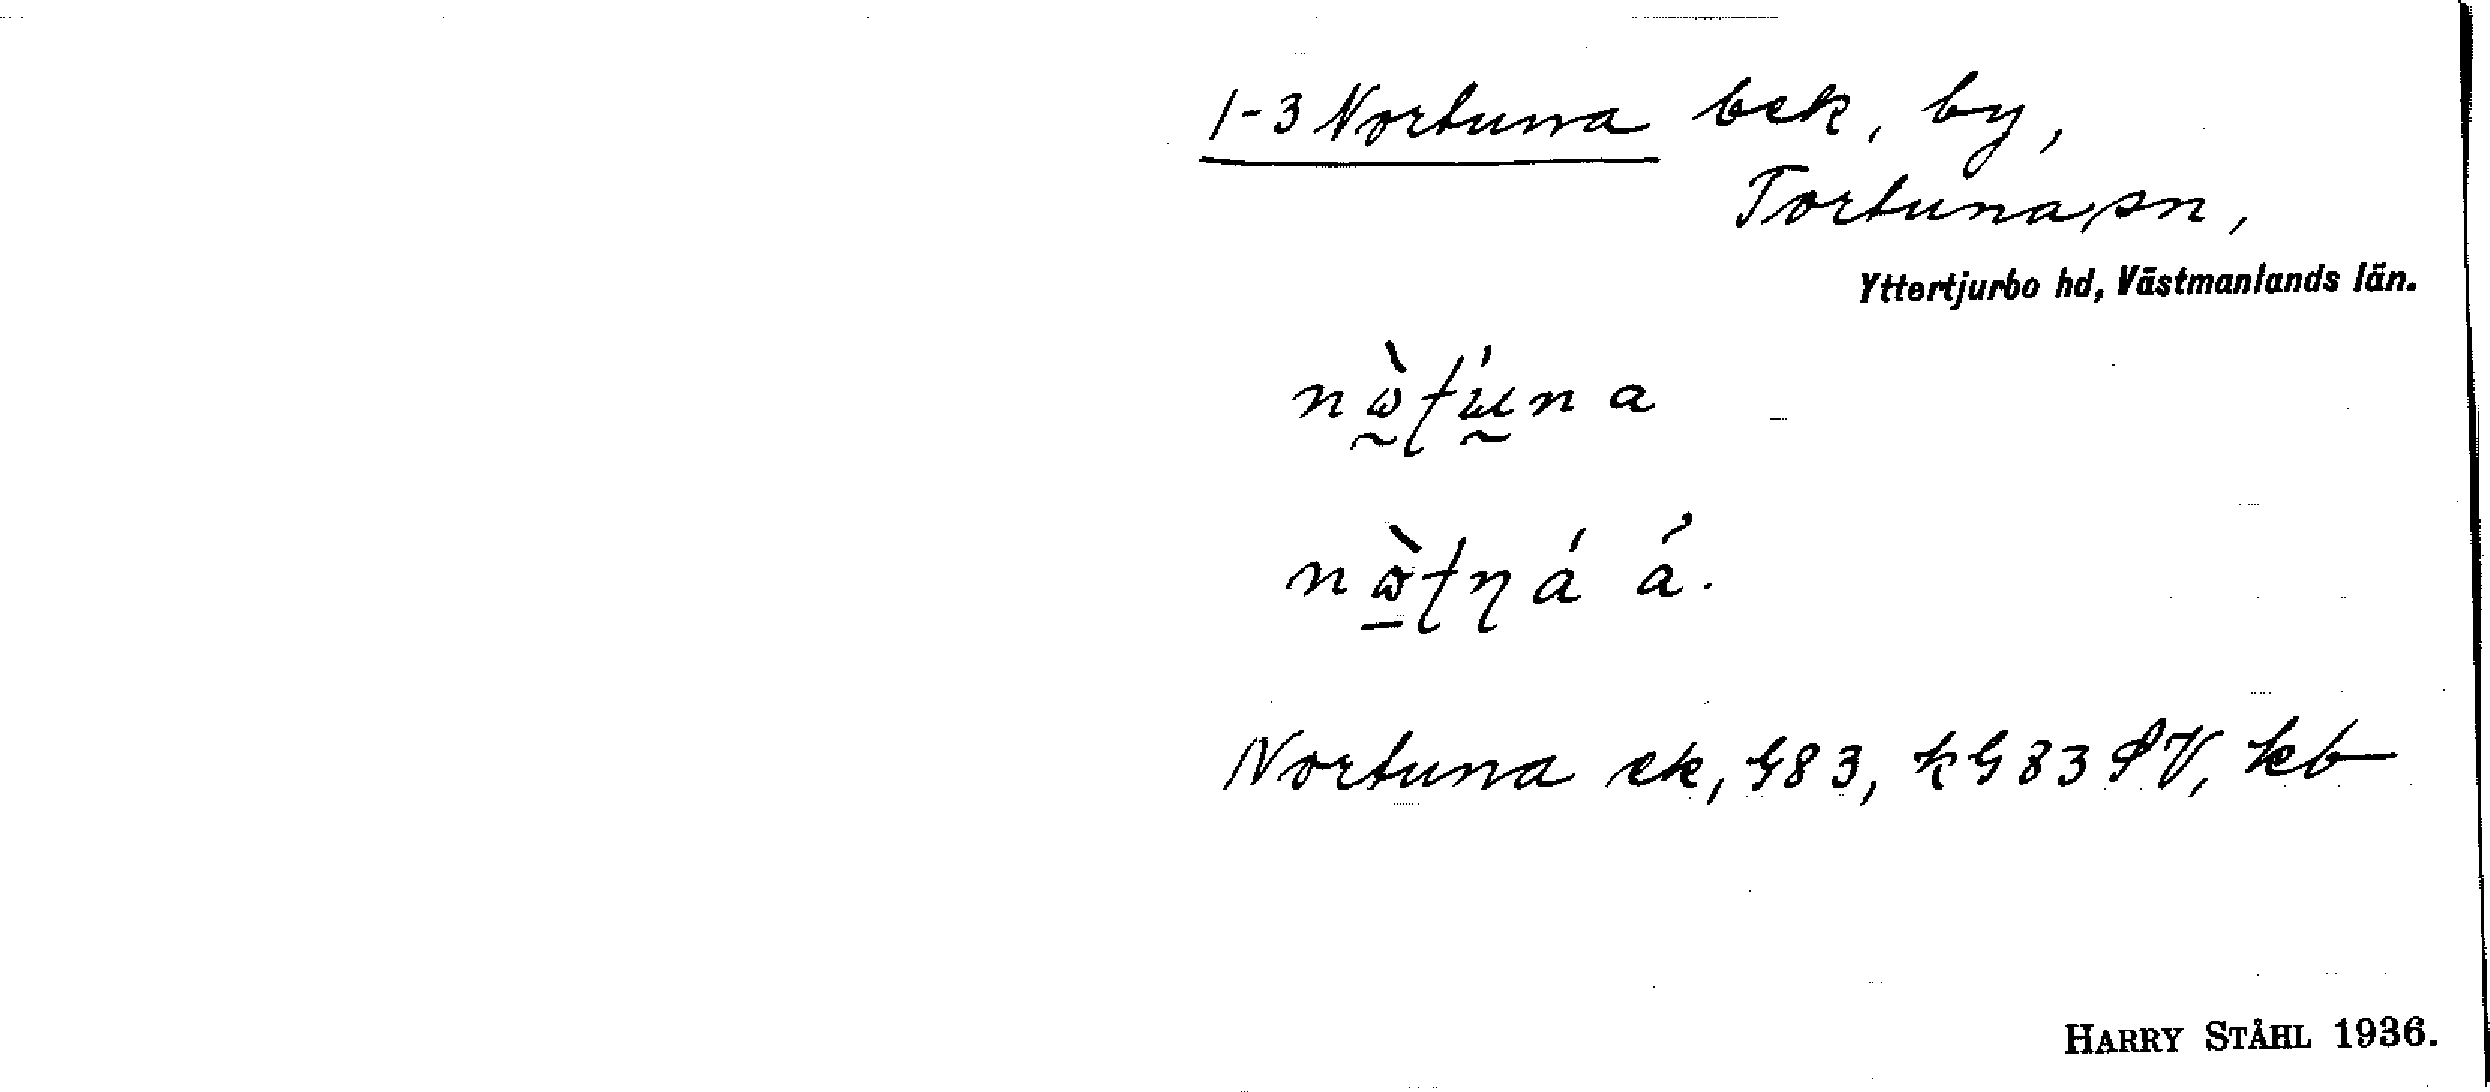 1-3 Nortuna bek, by,
Tortuna sn,
Yttertjurbo hd, Västmanlands län.
Nortuna ek, G83, kG83 SV, kb
HARRY STÅHL 1936.